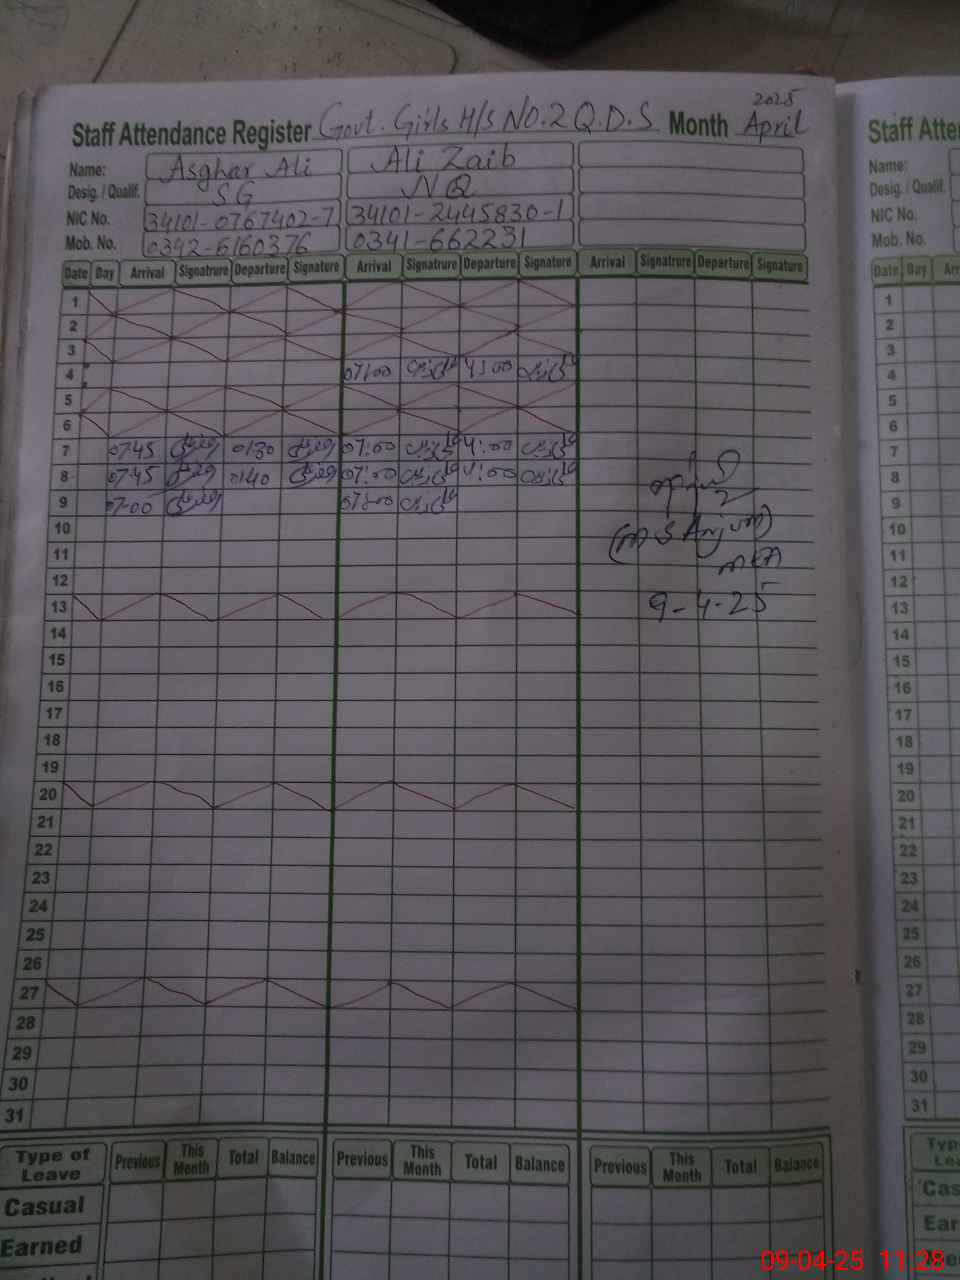 2025
Staff Attendance Register Govt. Girls H/S NO.2 Q.D.S Month April
Name: Asghar Ali Ali Zaib
Desig. / Qualif. SG NQ
NIC No. 34101-0767402-7 34101-2445830-1
Mob. No. 0342-6160376 0341-662231
Date Day Arrival Signatrure Departure Signature Arrival Signatrure Departure Signature Arrival Signatrure Departure Signature
1
2
3
4 07:00 4:00
5
6
7 0745 0130 07:00 4:00
8 0745 0140 07:00 4:00
9 07-00 07:00
10 (M S Anjum)
11 MEA
12
13 9-4-25
14
15
16
17
18
19
20
21
22
23
24
25
26
27
28
29
30
31
Type of Leave Previous This Month Total Balance Previous This Month Total Balance Previous This Month Total Balance
Casual
Earned
Staff Atte
Name:
Desig. / Qualif.
NIC No.
Mob. No.
Date Day Arr
1
2
3
4
5
6
7
8
9
10
11
12
13
14
15
16
17
18
19
20
21
22
23
24
25
26
27
28
29
30
31
Typ
Lea
Cas
Ear
09-04-25 11:28